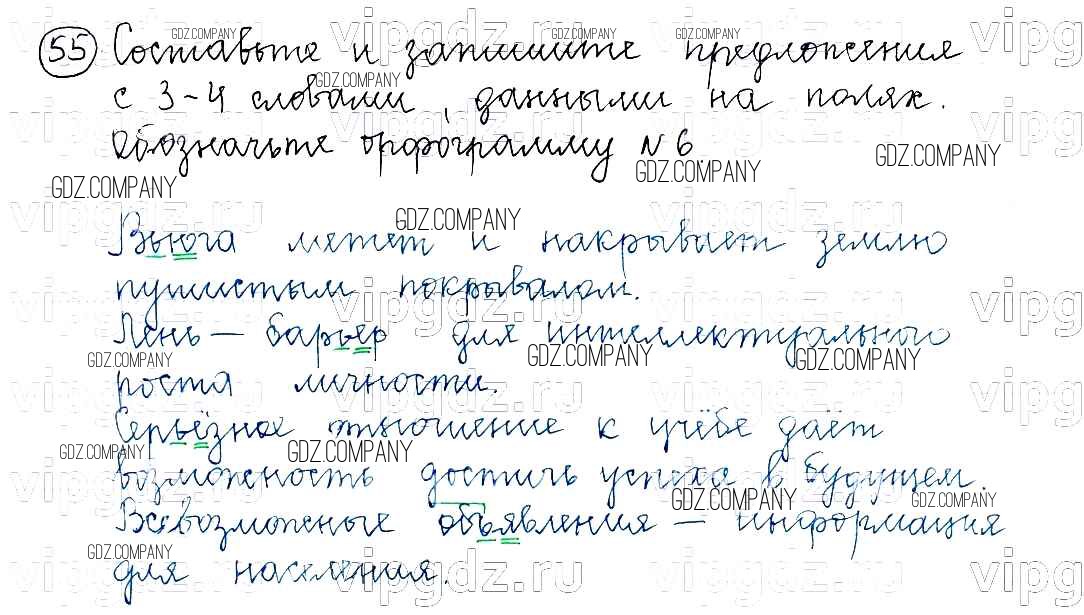 55 Составьте и запишите предложения
с 3-4 словами, данными на полях.
Обозначьте орфограмму № 6.
Вьюга метет и накрывает землю
пушистым покрывалом.
Лень — барьер для интеллектуального
роста личности.
Серьёзное отношение к учёбе даёт
возможность достичь успеха в будущем.
Всевозможные объявления — информация
для населения.
GDZ.COMPANY
vipgdz.ru